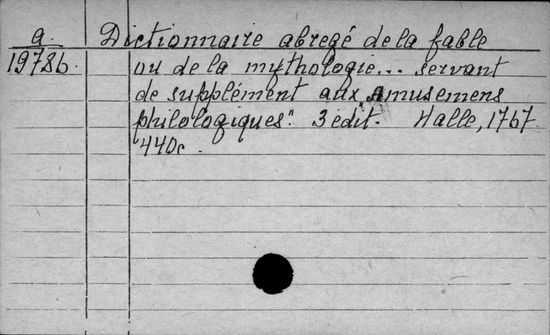 a. Dictionnaire abregé de la fable
19786. ou de la mythologie... servant
de supplément aux „Amusemens
philologiques". 3 édit. Halle, 1767.
440c.